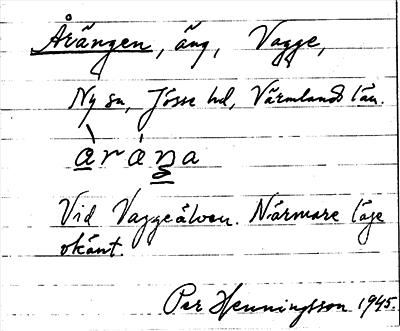 Årängen, äng, Vagge,
Ny sn, Jösse hd, Värmlands län.
àráŋa
Vid Vaggeälven. Närmare läge
okänt.
Per Henningsson 1945.